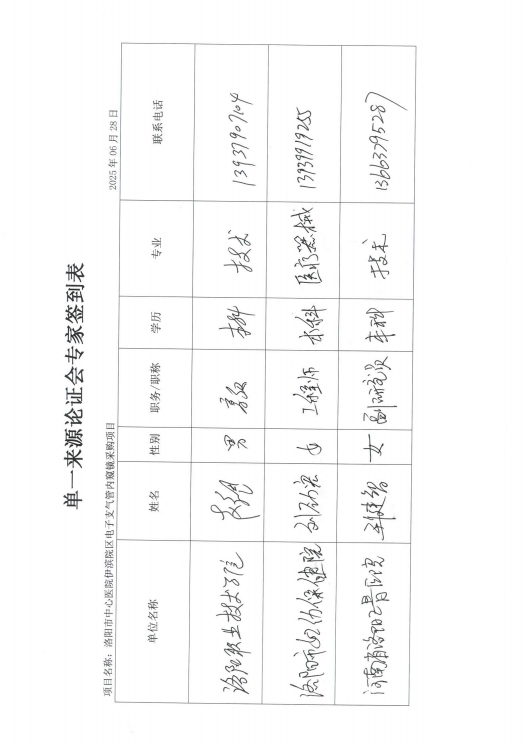 单一来源论证会专家签到表
项目名称：洛阳市中心医院伊滨院区电子支气管内窥镜采购项目 2025年06月28日
单位名称 姓名 性别 职务/职称 学历 专业 联系电话
洛阳职业技术学院 男 高级 本科 技术 13937907104
洛阳市妇幼保健院 女 工程师 本科 医疗器械 13939919255
河南省洛阳正骨医院 女 副研究员 本科 技术 13663795287